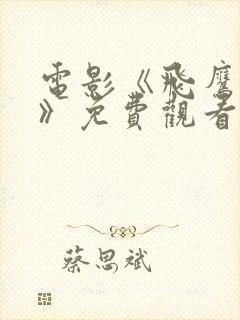 電影《飛鷹
》免費觀看
蔡思斌